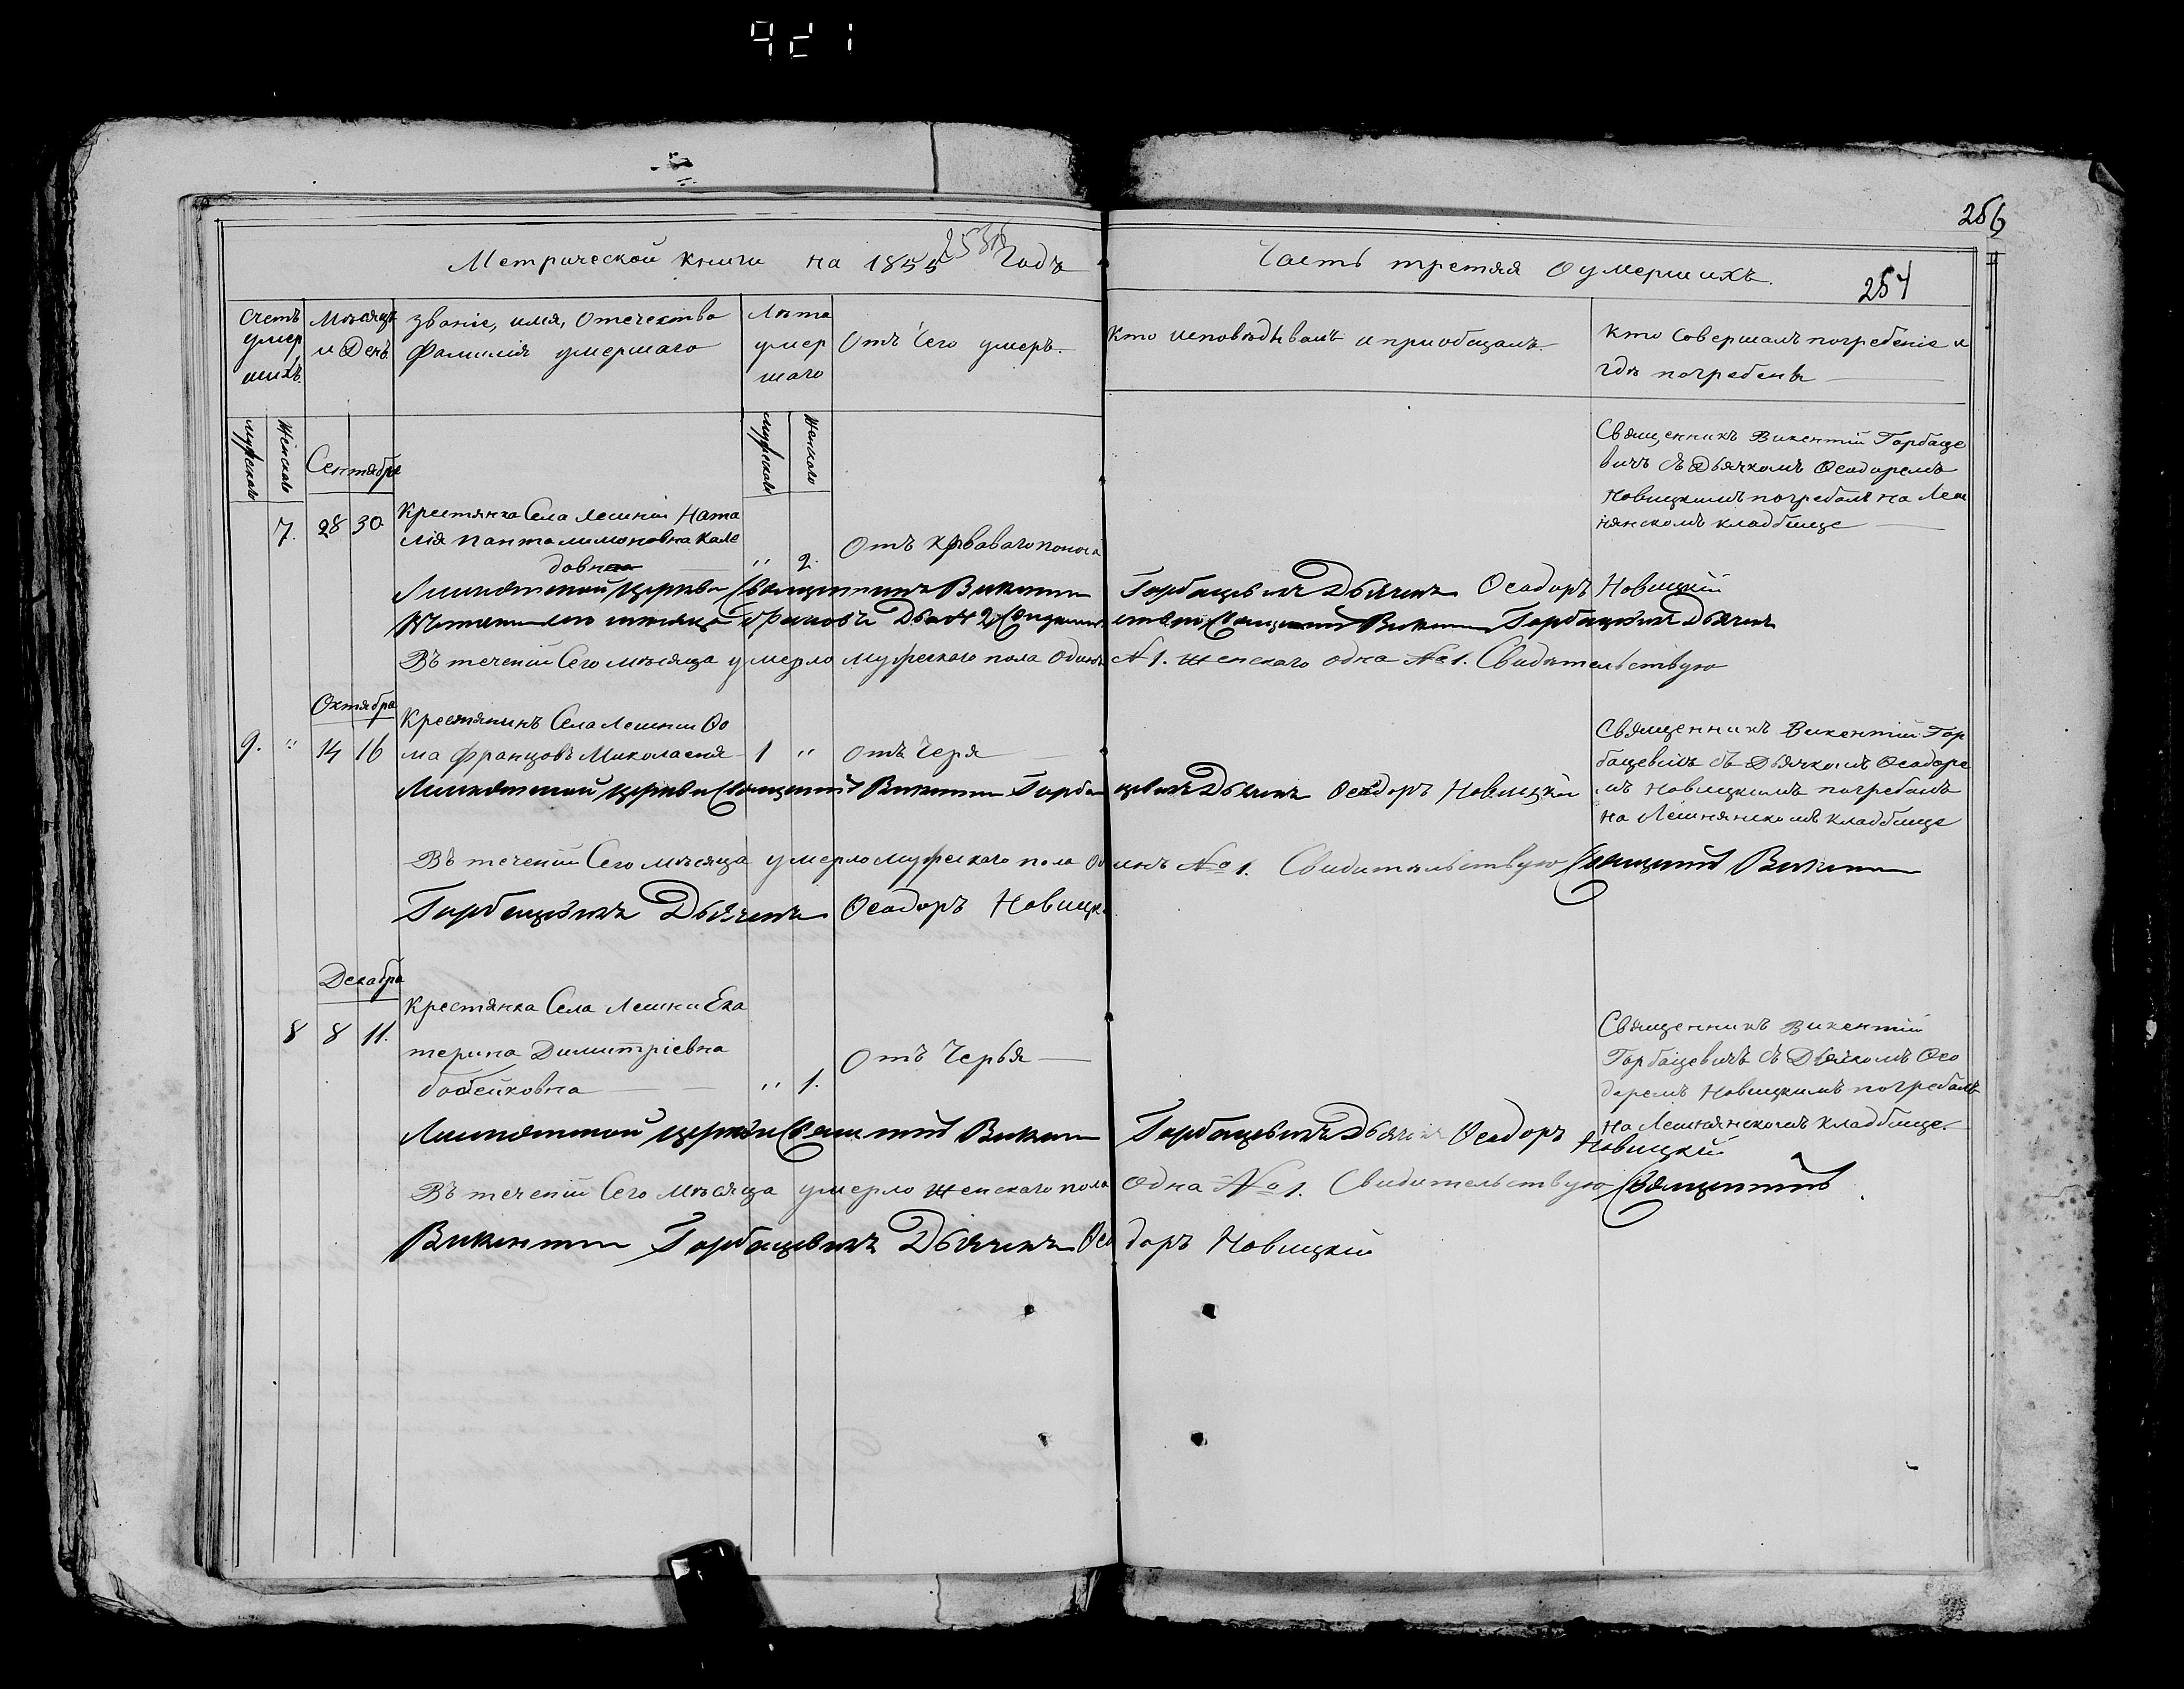 921
256
Метрической книги на 1855 Годъ
Часть третяя О умершихъ.
254
Счетъ умер шихъ.
Мѣсяцъ и День
Званіе, имя, Отечество Фамилія умершаго
Лѣта умер шаго
Отъ Чего умеръ.
Кто исповѣдывалъ и приобщалъ.
Кто совершалъ погребеніе и гдѣ погребенъ
Мужескаго
Женскаго
Мужескаго
Женскаго
Сентября
7. 28 30
Крестянка Села Лешни Ната
лія Панталимоновна Кале
довна
,, 2.
Отъ кроваваго поноса
Священникъ Викентій Горбаце
вичъ съ Дьячкомъ Ѳеодоромъ
Новицкимъ погребалъ на Леш
нянскомъ кладбище
Лешнянской Церкви Священникъ Викентій Горбацевичъ Дьячекъ Ѳеодоръ Новицкій
Священникъ Викентій Горбацевичъ Дьячекъ
Въ теченіи Сего мѣсяца умерло мужескаго пола Одинъ №1. женскаго одна №1. Свидѣтельствую
Октября
9. ,, 14 16
Крестянинъ Села Лешни Ѳо
ма Францовъ Миколаеня
1 ,,
Отъ Черя
Священникъ Викентій Гор
бацевичъ съ Дьячкомъ Ѳеодоро
мъ Новицкимъ погребалъ
на Лешнянскомъ кладбище
Лешнянской Церкви Священникъ Викентій Горбацевичъ Дьячекъ Ѳеодоръ Новицкій
Въ теченіи Сего мѣсяца умерло мужескаго пола Одинъ №1. Свидительствую Священникъ Викентій
Горбацевичъ Дьячекъ Ѳеодоръ Новицкі
Декабря
8 8 11.
Крестянка Села Лешни Ека
терина Димитріевна
бобейковна
,, 1.
Отъ Чербя
Священникъ Викентій
Горбацевичъ съ Дьячкомъ Ѳео
доромъ Новицкимъ погребалъ
на Лешнянскомъ кладбище.
Лешнянской Церкви Священникъ Викентій Горбацевичъ Дьячекъ Ѳеодоръ Новицкій
Въ теченіи Сего мѣсяца умерло женскаго пола Одна №1. Свидительствую Священникъ
Викентій Горбацевичъ Дьячекъ Ѳеодоръ Новицкій